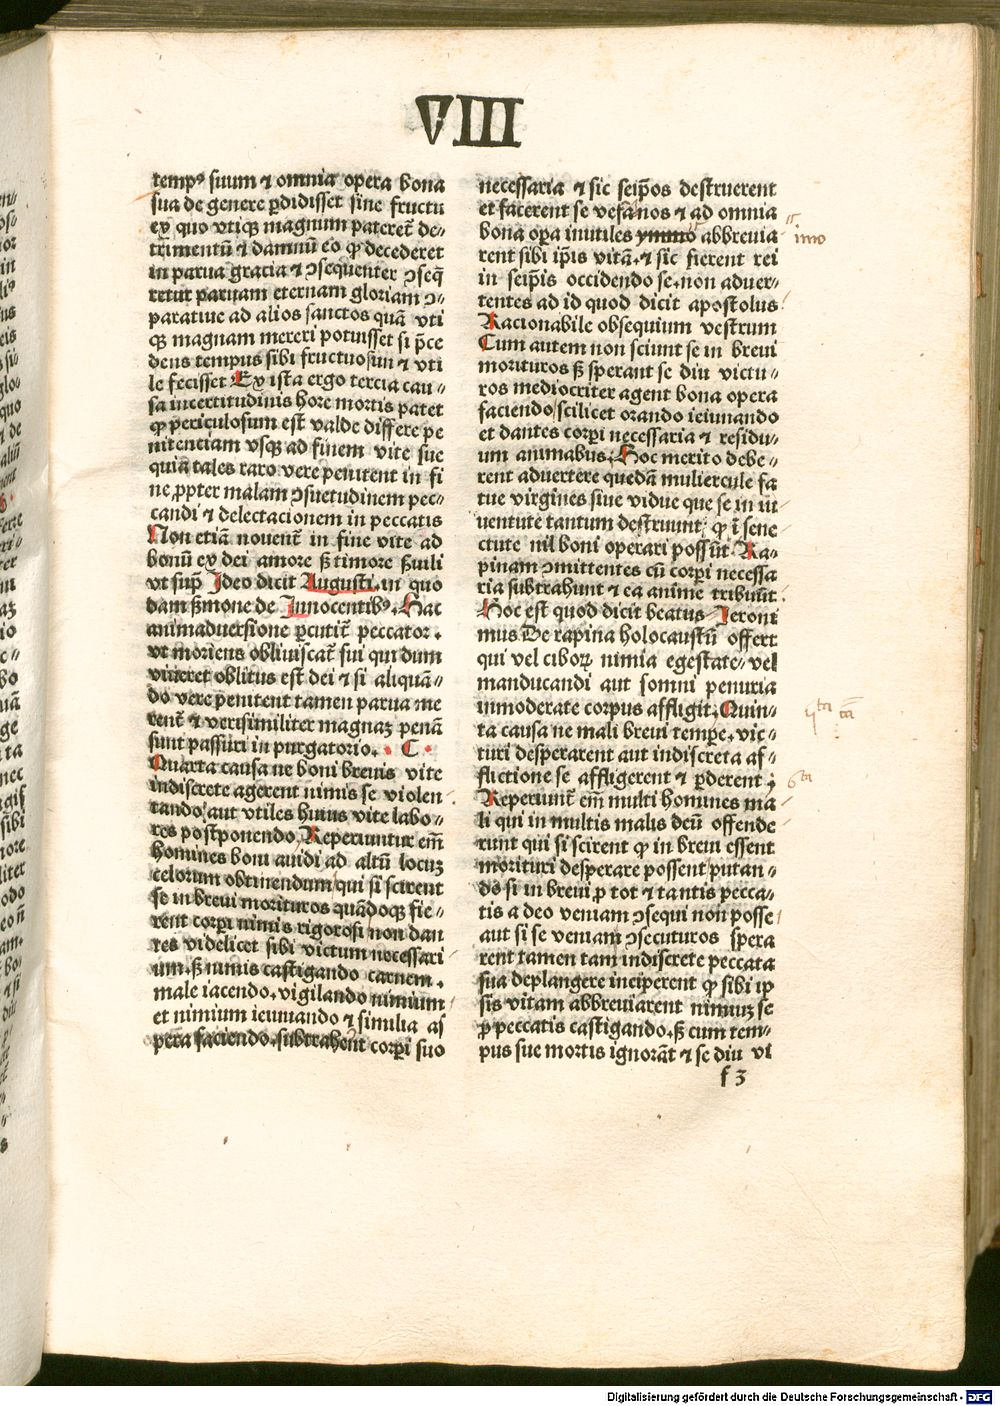 VIII
tempꝰ suum ⁊ omnia opera bona
sua de genere ꝑdidisset sine fructu
ex quo vtiqꝫ magnum pateret̄ de⸗
trimentū ⁊ damnū eo ꝙ decederet
in parua gracia ⁊ ↄsequenter ↄseq̄
retur paruam eternam gloriam ↄ⸗
paratiue ad alios sanctos quā vti
qꝫ magnam mereri potuisset si p̄ce
dens tempus sibi fructuosun ⁊ vti
le fecisset Ex ista ergo tercia cau⸗
sa incertitudinis hore mortis patet
ꝙ periculosum est valde differe pe
nitentiam vsqꝫ ad finem vite sue
quiā tales raro vere penitent in fi
ne ꝓpter malam ↄsuetudinem pec⸗
candi ⁊ delectacionem in peccatis
Non etiā nouent̄ in fine vite ad
bonū ex dei amore ß timore ßuili
vt sup̄ Ideo dicit Augusti. in quo
dam ßmone de Innocentibꝰ. Hac
animaduersione ꝑcutit̄ peccator.
vt moriens obliuiscat̄ sui qui dum
viueret oblitus est dei ⁊ si aliquā⸗
do vere penitent tamen parua me
rent̄ ⁊ verisimiliter magnaꝫ penā
sunt passuri in purgatorio. · C ·
Quarta causa ne boni breuis vite
indiscrete agerent nimis se violen
tando / aut vtiles huius vite labo⸗
res postponendo Reperiuntur em̄
homines boni auidi ad altū locuꝫ
celorum obtinendum qui si scirent
se in breui morituros quādoqꝫ fie⸗
rent corꝑi nimis rigorosi non dan
tes videlicet sibi victum necessari
um. ß nimis castigando carnem.
male iacendo. vigilando nimium
et nimium ieiuuando ⁊ similia as
pera faciendo. subtrahēut corꝑi suo
necessaria ⁊ sic seip̄os destruerent
et facerent se vesanos ⁊ ad omnia
bona oꝑa inutiles ymmo abbreuia
rent sibi ip̄is vitā. ⁊ sic fierent rei
in seip̄is occidendo se. non aduer⸗
tentes ad id quod dicit apostolus
Racionabile obsequium vestrum
Cum autem non sciunt se in breui
morituros ß sperant se diu victu⸗
ros mediocriter agent bona opera
faciendo / scilicet orando ieiunando
et dantes corꝑi necessaria ⁊ residu⸗
um animabus. Hoc merito debe⸗
rent aduertere quedā muliercule fa
tue virgines siue vidue que se in iu⸗
uentute tantum destruunt. ꝙ ī sene
ctute nil boni operari possūt. Ra⸗
pinam ↄmittentes cū corꝑi necessa
ria subtrahunt ⁊ ea anime tribuūt.
Hoc est quod dicit beatus Ieroni
mus De rapina holocaustū offert
qui vel ciboꝝ nimia egestate. vel
manducandi aut somni penuria
inmoderate corpus affligit. Quin⸗
ta causa ne mali breui tempe. vic⸗
turi desperarent aut indiscreta af⸗
flictione se affligerent ⁊ ꝑderent ;
Reperiunt̄ em̄ multi homines ma
li qui in multis malis deū offende
runt qui si scirent ꝙ in breui essent
morituri desperare possent putan⸗
do si in breui ꝓ tot ⁊ tantis pecca⸗
tis a deo veniam ↄsequi non posse
aut si se veniam ↄsecuturos spera
rent tamen tam indiscrete peccata
sua deplangere inciperent ꝙ sibi ip
sis vitam abbreuiarent nimiuꝫ se
ꝓ peccatis castigando. ß cum tem⸗
pus sue mortis ignorāt ⁊ se diu vi
f 3
imo
6ta
Digitalisierung gefördert durch die Deutsche Forschungsgemeinschaft - DFG